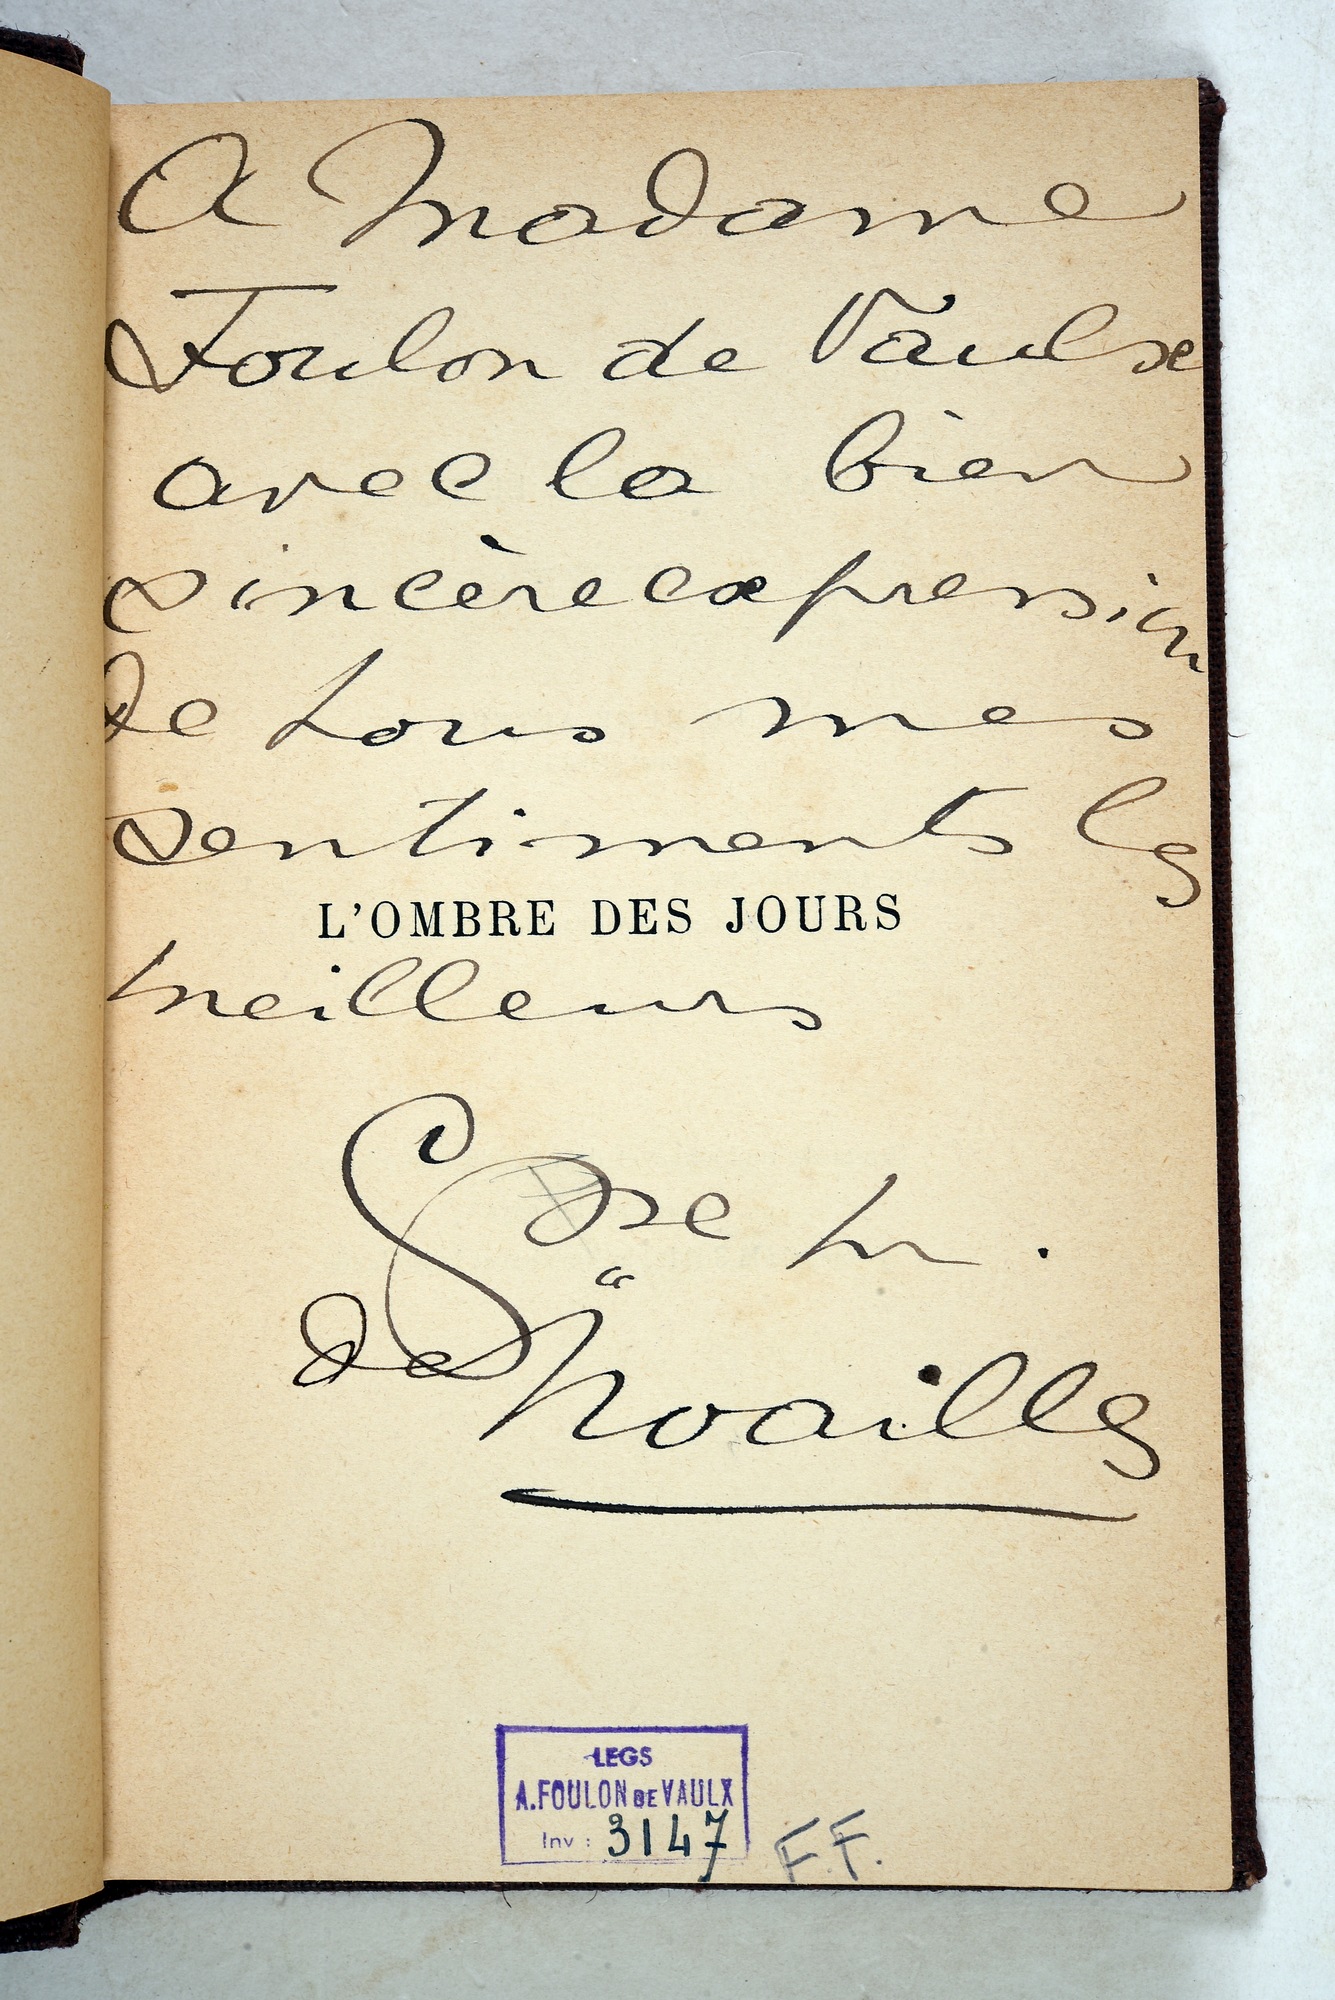 A Madame
Foulon de Vaulx
avec la bien
sincère expression
de tous mes
sentiments les
L'OMBRE DES JOURS
meilleurs
de Noailles
LEGS
A. FOULON DE VAULX
Inv : 3147
F.F.